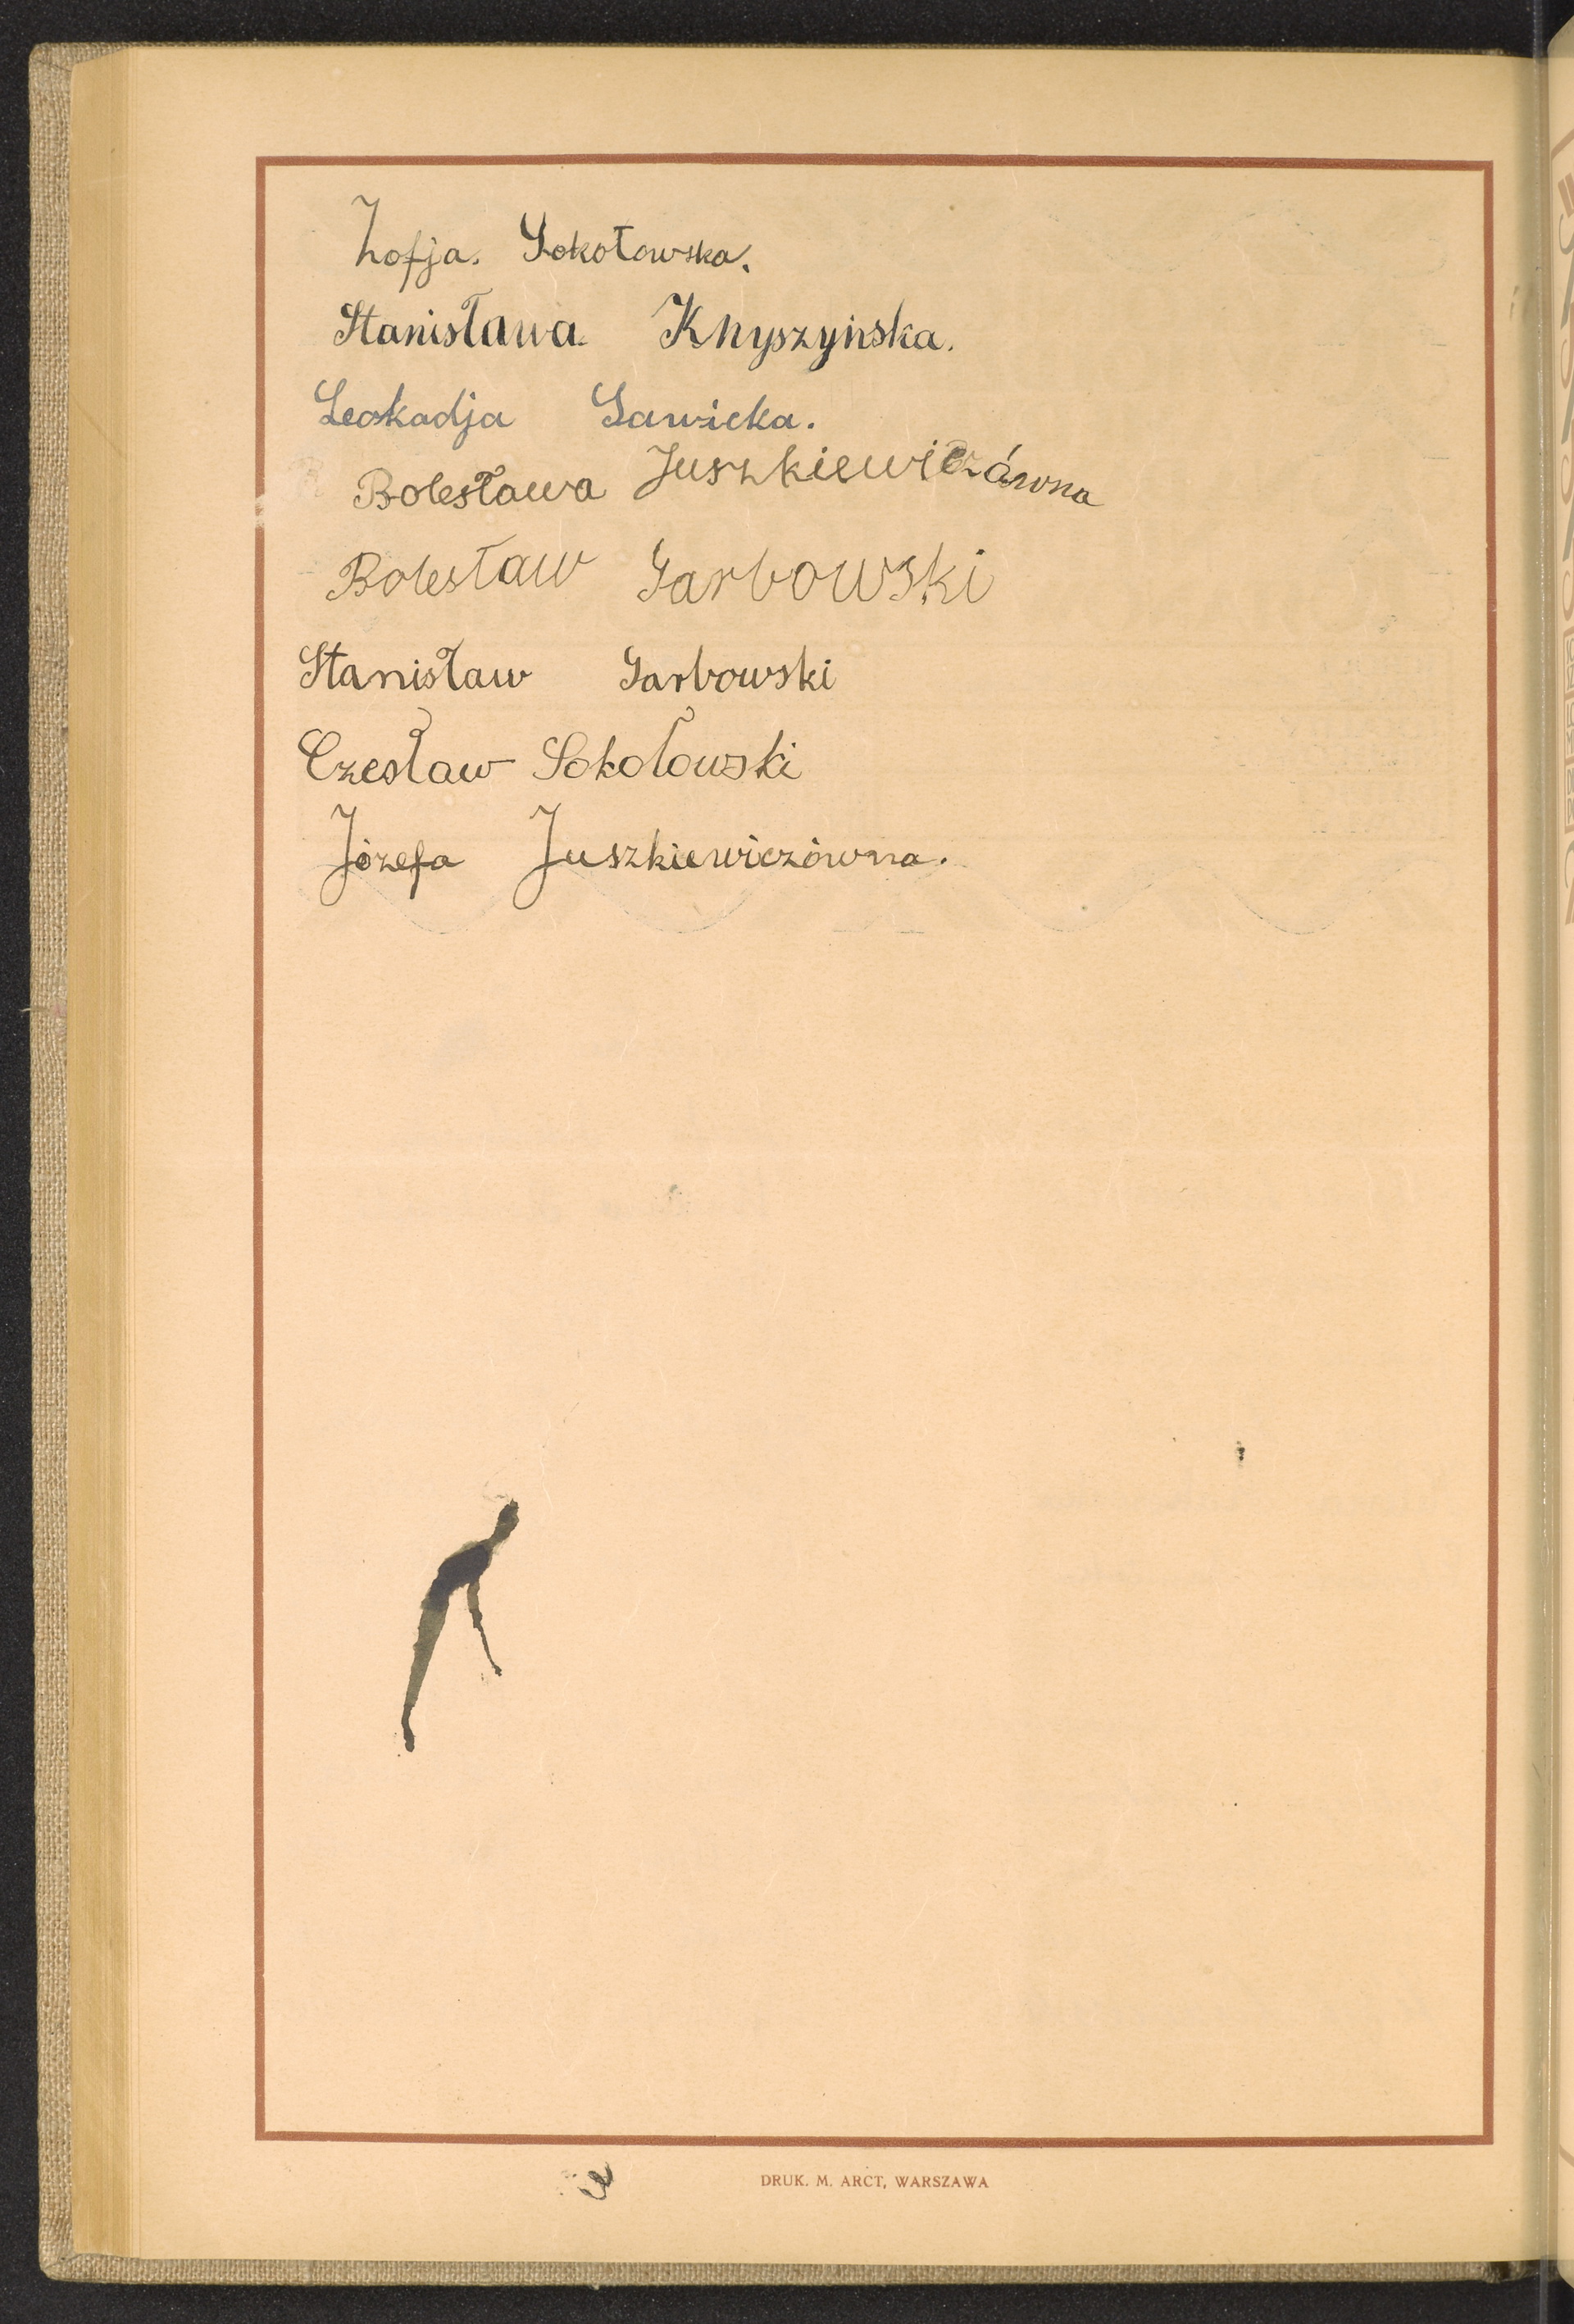 Zofja. Sokołowska.
Stanisława Knyszyńska.
Leokadja Sawicka.
Bolesława Juszkiewiczówna
Bolesław Garbowski
Stanisław Garbowski
Czesław Sokołowski
Józefa Juszkiewiczówna.
DRUK. M. ARCT, WARSZAWA